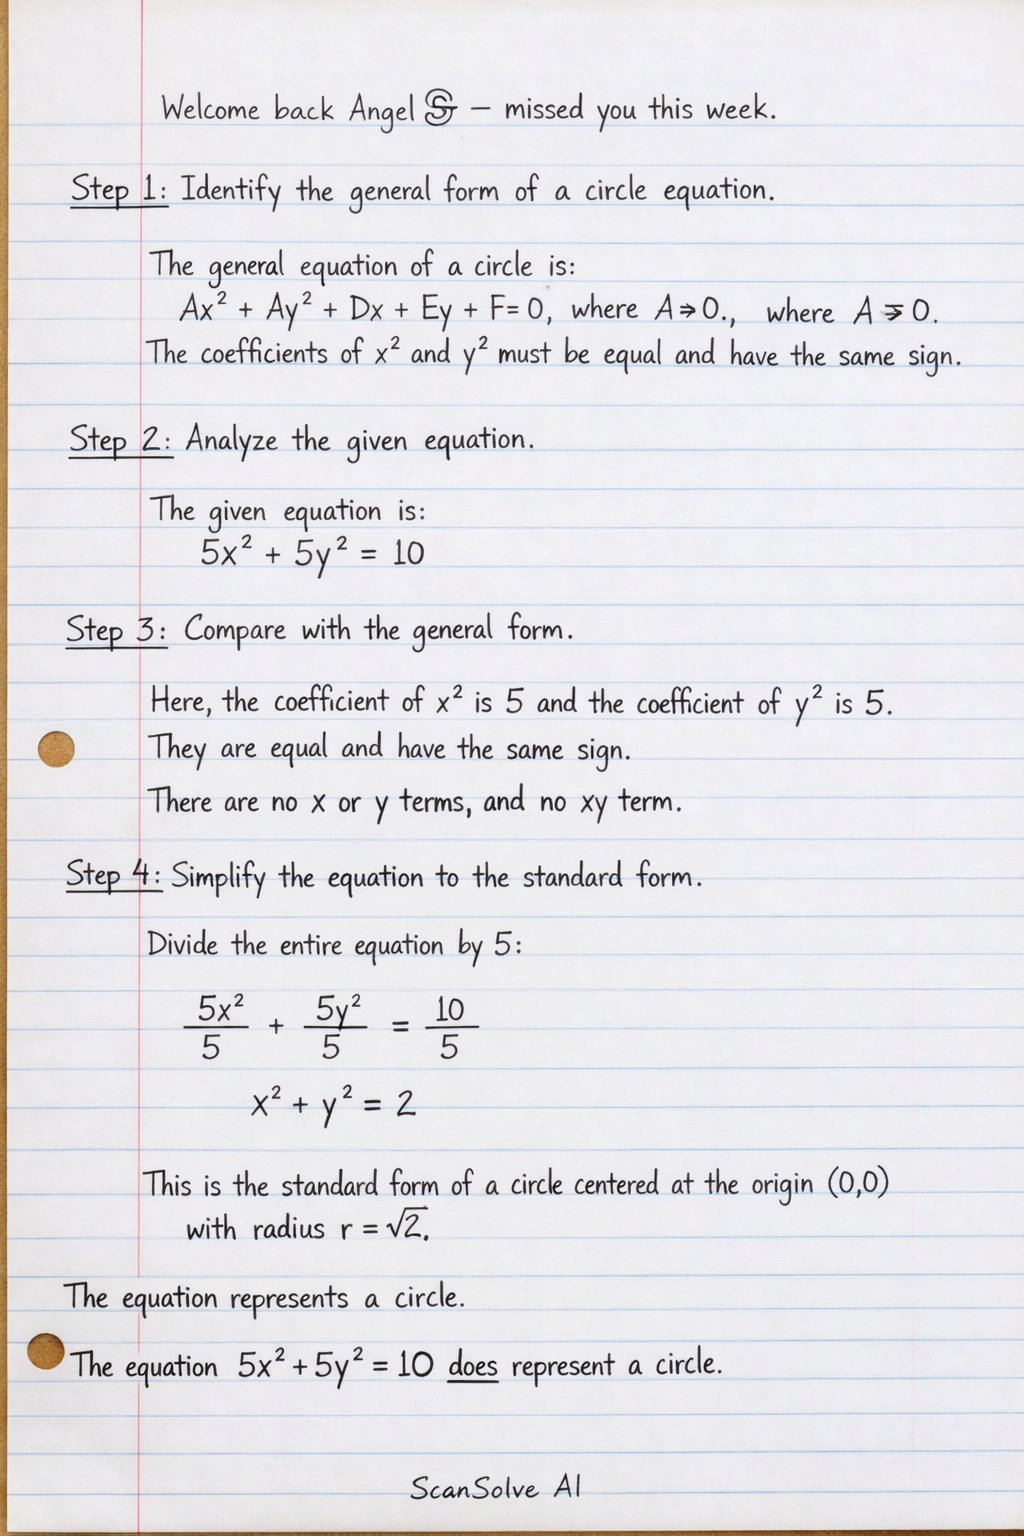 Welcome back Angel — missed you this week.
Step 1: Identify the general form of a circle equation.
The general equation of a circle is:
Ax² + Ay² + Dx + Ey + F = 0, where A ⇒ 0., where A 0.
The coefficients of x² and y² must be equal and have the same sign.
Step 2: Analyze the given equation.
The given equation is:
5x² + 5y² = 10
Step 3: Compare with the general form.
Here, the coefficient of x² is 5 and the coefficient of y² is 5.
They are equal and have the same sign.
There are no x or y terms, and no xy term.
Step 4: Simplify the equation to the standard form.
Divide the entire equation by 5:
5x²/5 + 5y²/5 = 10/5
x² + y² = 2
This is the standard form of a circle centered at the origin (0,0)
with radius r = √2.
The equation represents a circle.
The equation 5x² + 5y² = 10 does represent a circle.
ScanSolve AI